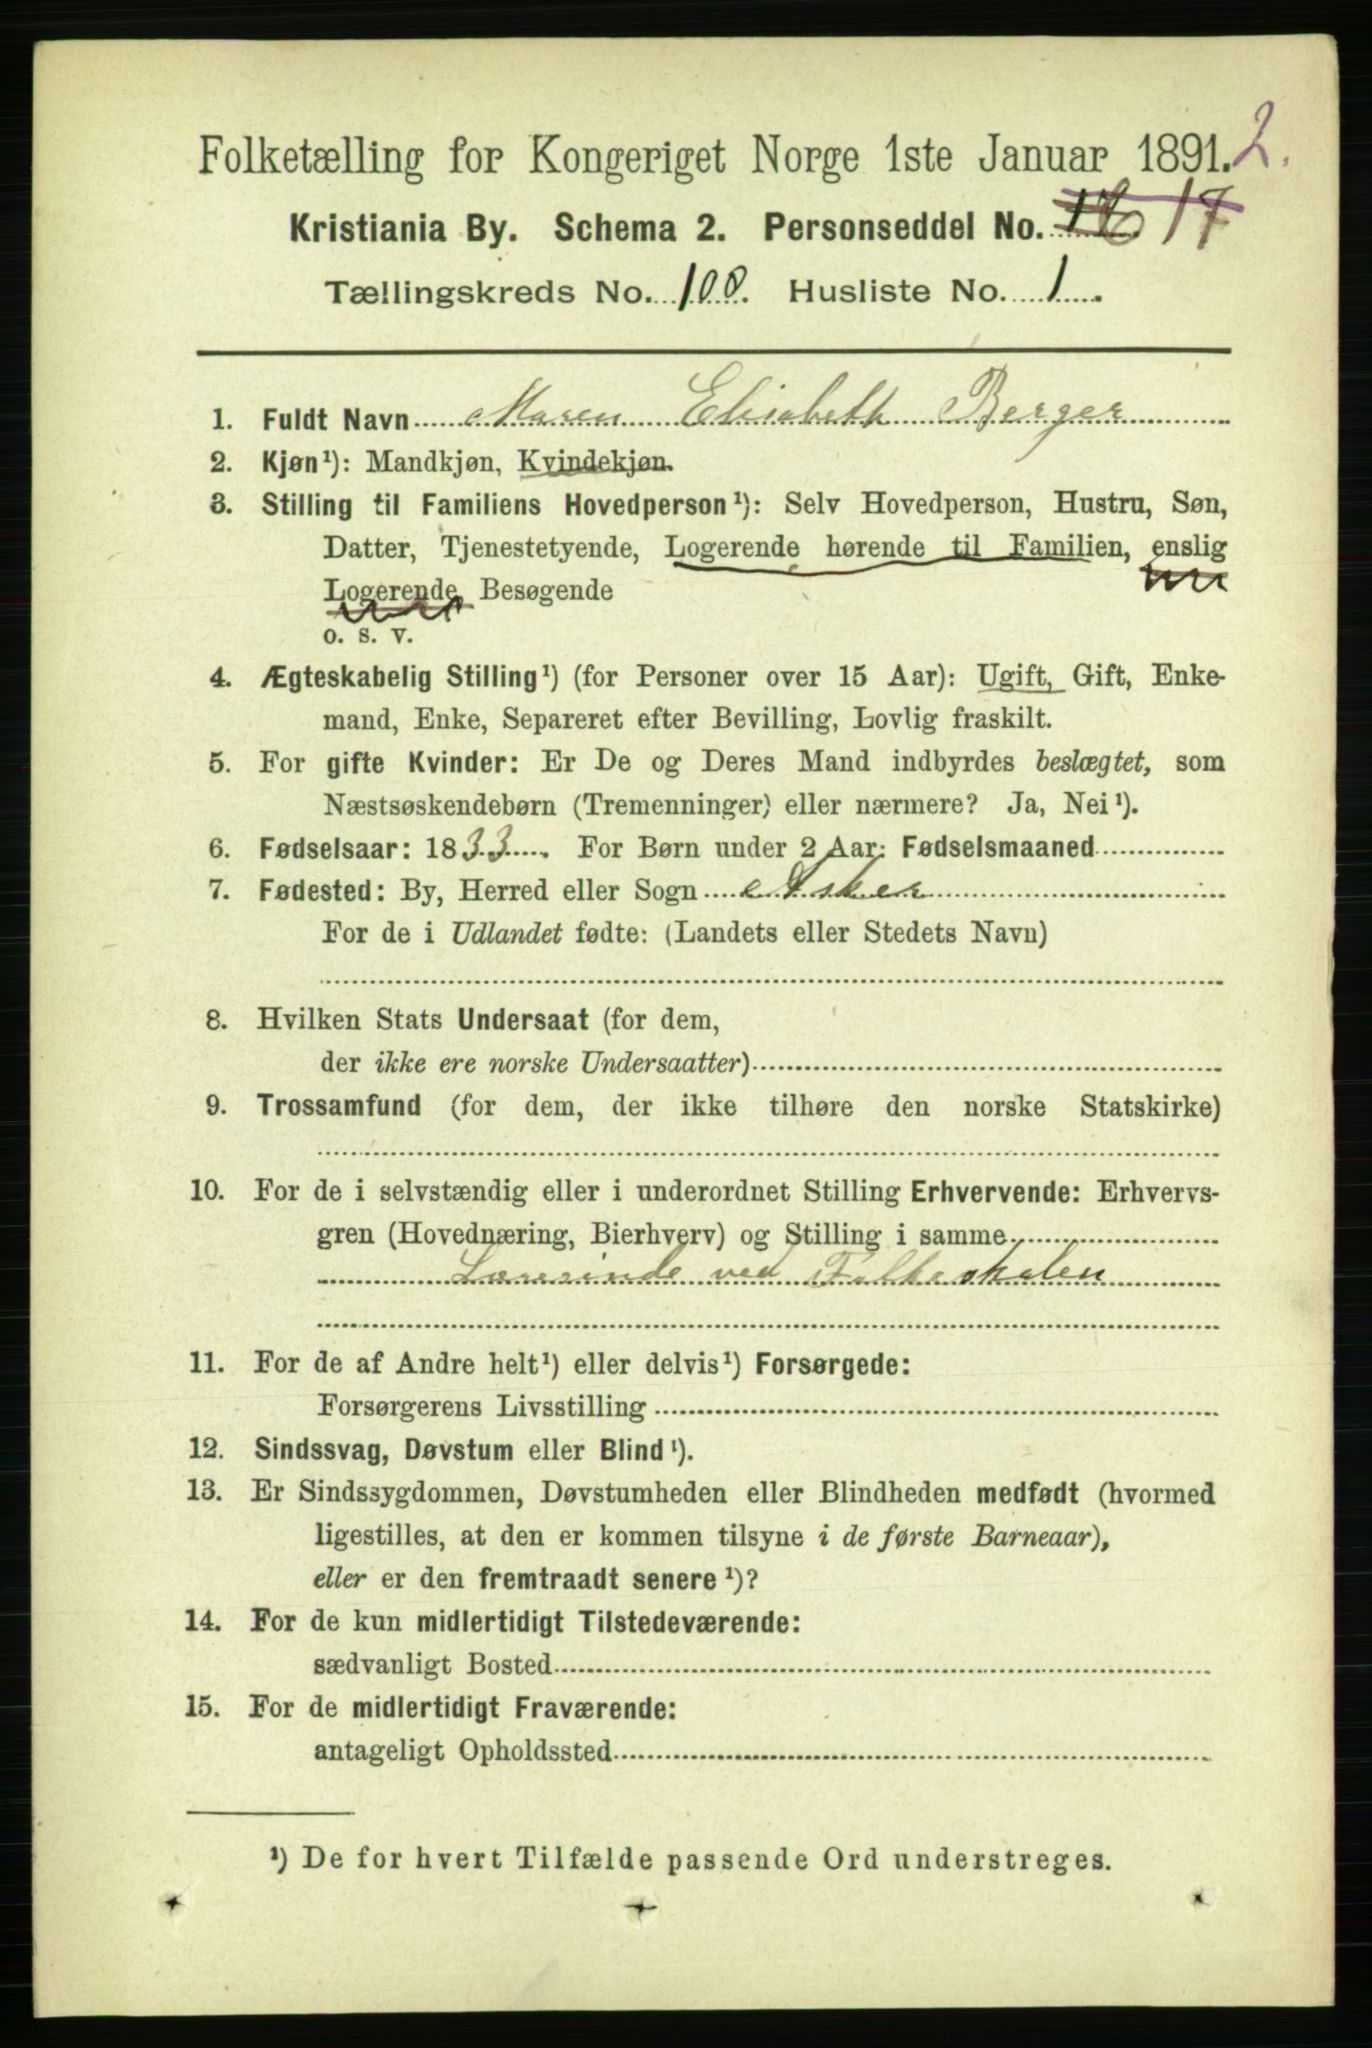 Folketælling for Kongeriget Norge 1ste Januar 1891. 2.
Kristiania By. Schema 2. Personseddel No. 17
Tællingskreds No. 100. Husliste No. 1
1. Fuldt Navn Maren Elisabeth Berger
2. Kjøn¹): Mandkjøn, Kvindekjøn.
3. Stilling til Familiens Hovedperson¹): Selv Hovedperson, Hustru, Søn,
Datter, Tjenestetyende, Logerende hørende til Familien, enslig
Logerende, Besøgende
o. s. v.
4. Ægteskabelig Stilling¹) (for Personer over 15 Aar): Ugift, Gift, Enke-
mand, Enke, Separeret efter Bevilling, Lovlig fraskilt.
5. For gifte Kvinder: Er De og Deres Mand indbyrdes beslægtet, som
Næstsøskendebørn (Tremenninger) eller nærmere? Ja, Nei¹).
6. Fødselsaar: 1833. For Børn under 2 Aar: Fødselsmaaned
7. Fødested: By, Herred eller Sogn Asker
For de i Udlandet fødte: (Landets eller Stedets Navn)
8. Hvilken Stats Undersaat (for dem,
der ikke ere norske Undersaatter)
9. Trossamfund (for dem, der ikke tilhøre den norske Statskirke)
10. For de i selvstændig eller i underordnet Stilling Erhvervende: Erhvervs-
gren (Hovednæring, Bierhverv) og Stilling i samme
Lærerinde ved Folkeskolen
11. For de af Andre helt¹) eller delvis¹) Forsørgede:
Forsørgerens Livsstilling
12. Sindssvag, Døvstum eller Blind¹).
13. Er Sindssygdommen, Døvstumheden eller Blindheden medfødt (hvormed
ligestilles, at den er kommen tilsyne i de første Barneaar),
eller er den fremtraadt senere¹)?
14. For de kun midlertidigt Tilstedeværende:
sædvanligt Bosted
15. For de midlertidigt Fraværende:
antageligt Opholdssted
¹) De for hvert Tilfælde passende Ord understreges.